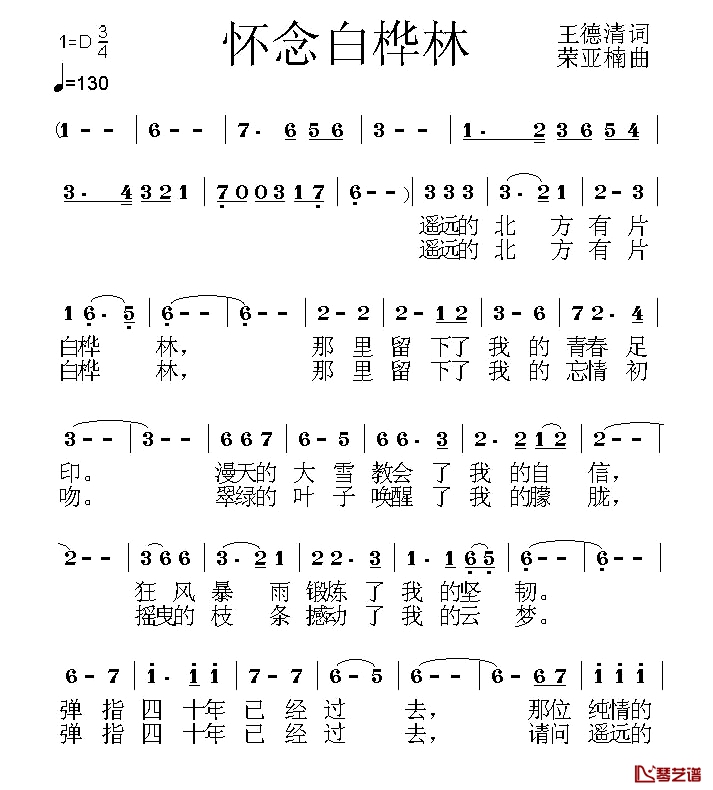 怀念白桦林
1=D 3/4
王德清词
♩=130
荣亚楠曲
(1 - - | 6 - - | 7 · 6 5 6 | 3 - - | 1 · 2 3 6 5 4 |
3 · 4 3 2 1 | 7 0 0 3 1 7 | 6 - - ) | 3 3 3 | 3 · 2 1 | 2 - 3 |
遥远的 北 方 有 片
遥远的 北 方 有 片
1 6 · 5 | 6 - - | 6 - - | 2 - 2 | 2 - 1 2 | 3 - 6 | 7 2 · 4 |
白桦 林, 那 里 留 下了 我 的 青春 足
白桦 林, 那 里 留 下了 我 的 忘情 初
3 - - | 3 - - | 6 6 7 | 6 - 5 | 6 6 · 3 | 2 · 2 1 2 | 2 - - |
印。 漫天的 大 雪 教会 了 我 的自 信,
吻。 翠绿的 叶 子 唤醒 了 我 的朦 胧,
2 - - | 3 6 6 | 3 · 2 1 | 2 2 · 3 | 1 · 1 6 5 | 6 - - | 6 - - |
狂 风 暴 雨 锻炼 了 我 的坚 韧。
摇曳的 枝 条 撼动 了 我 的云 梦。
6 - 7 | 1 · 1 1 | 7 - 7 | 6 - 5 | 6 - - | 6 - 6 7 | 1 1 1 |
弹 指 四 十年 已 经 过 去, 那位 纯情的
弹 指 四 十年 已 经 过 去, 请问 遥远的
琴艺谱